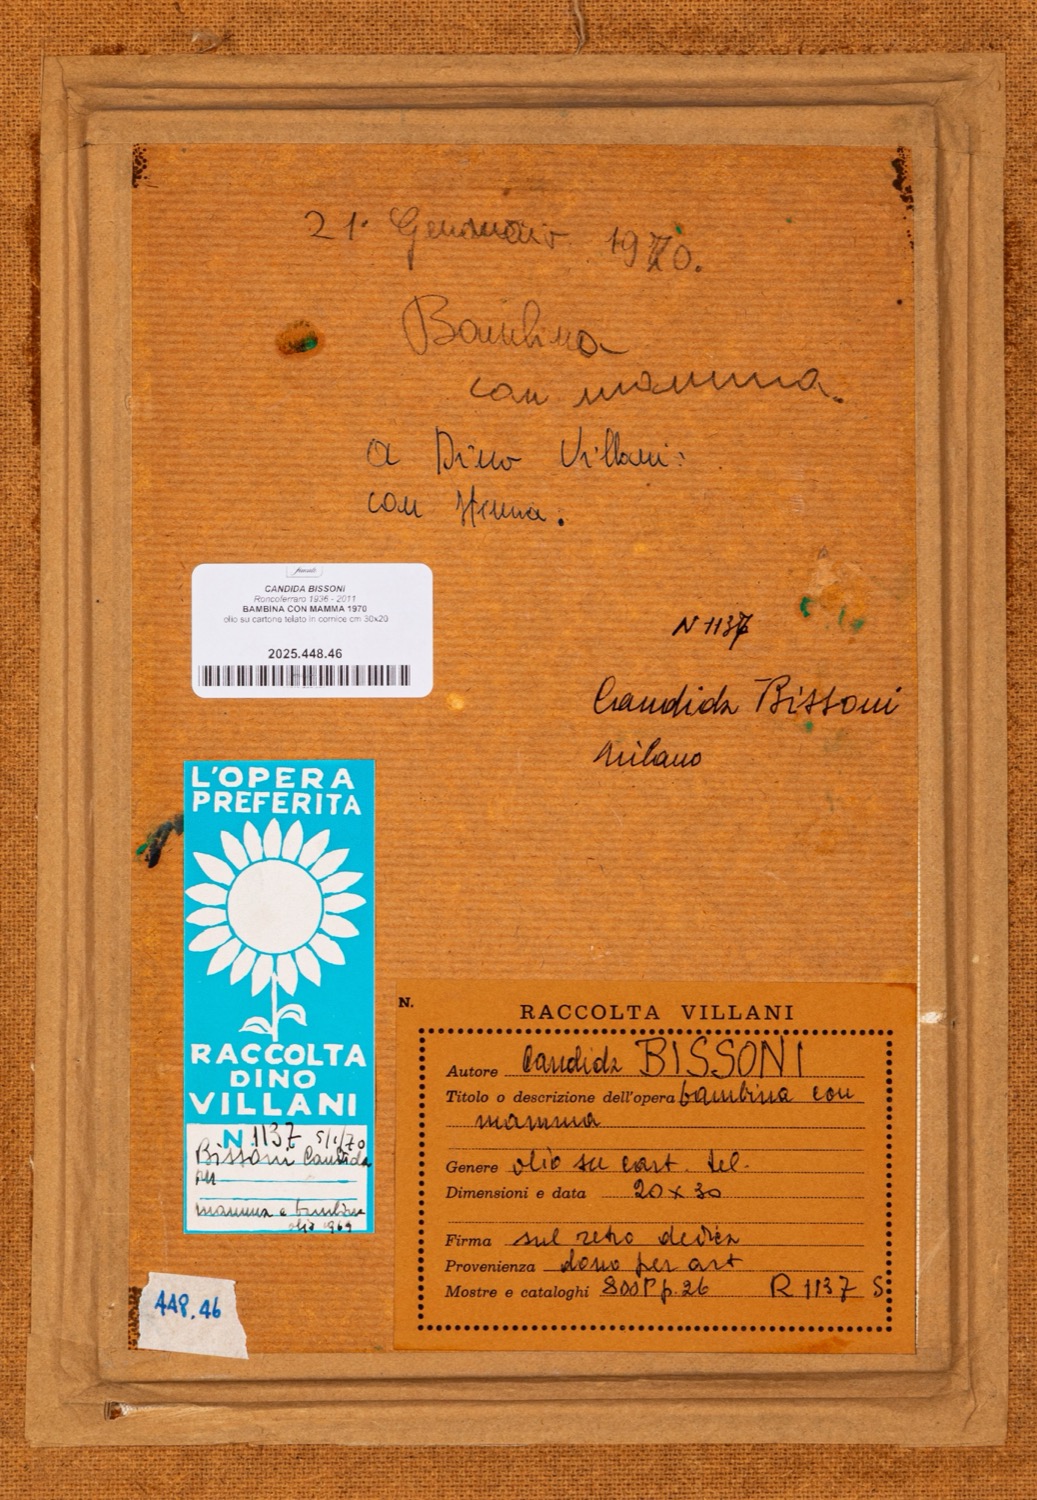 21. Gennaio 1970.
Bambina
con mamma.
a Dino Villani:
con stima.
finarte
CANDIDA BISSONI
Roncoferraro 1936 - 2011
BAMBINA CON MAMMA 1970
olio su cartone telato in cornice cm 30x20
2025.448.46
N 1137
Candida Bissoni
Milano
L'OPERA
PREFERITA
RACCOLTA
DINO
VILLANI
N 1137 5/1/70
Bissoni Candida
mamma e bambina
olio 1969
448.46
N.
RACCOLTA VILLANI
Autore Candida BISSONI
Titolo o descrizione dell'opera bambina con
mamma
Genere olio su cart. tel.
Dimensioni e data 20 x 30
Firma sul retro dedica
Provenienza dono per art
Mostre e cataloghi 800P p.26 R 1137 S